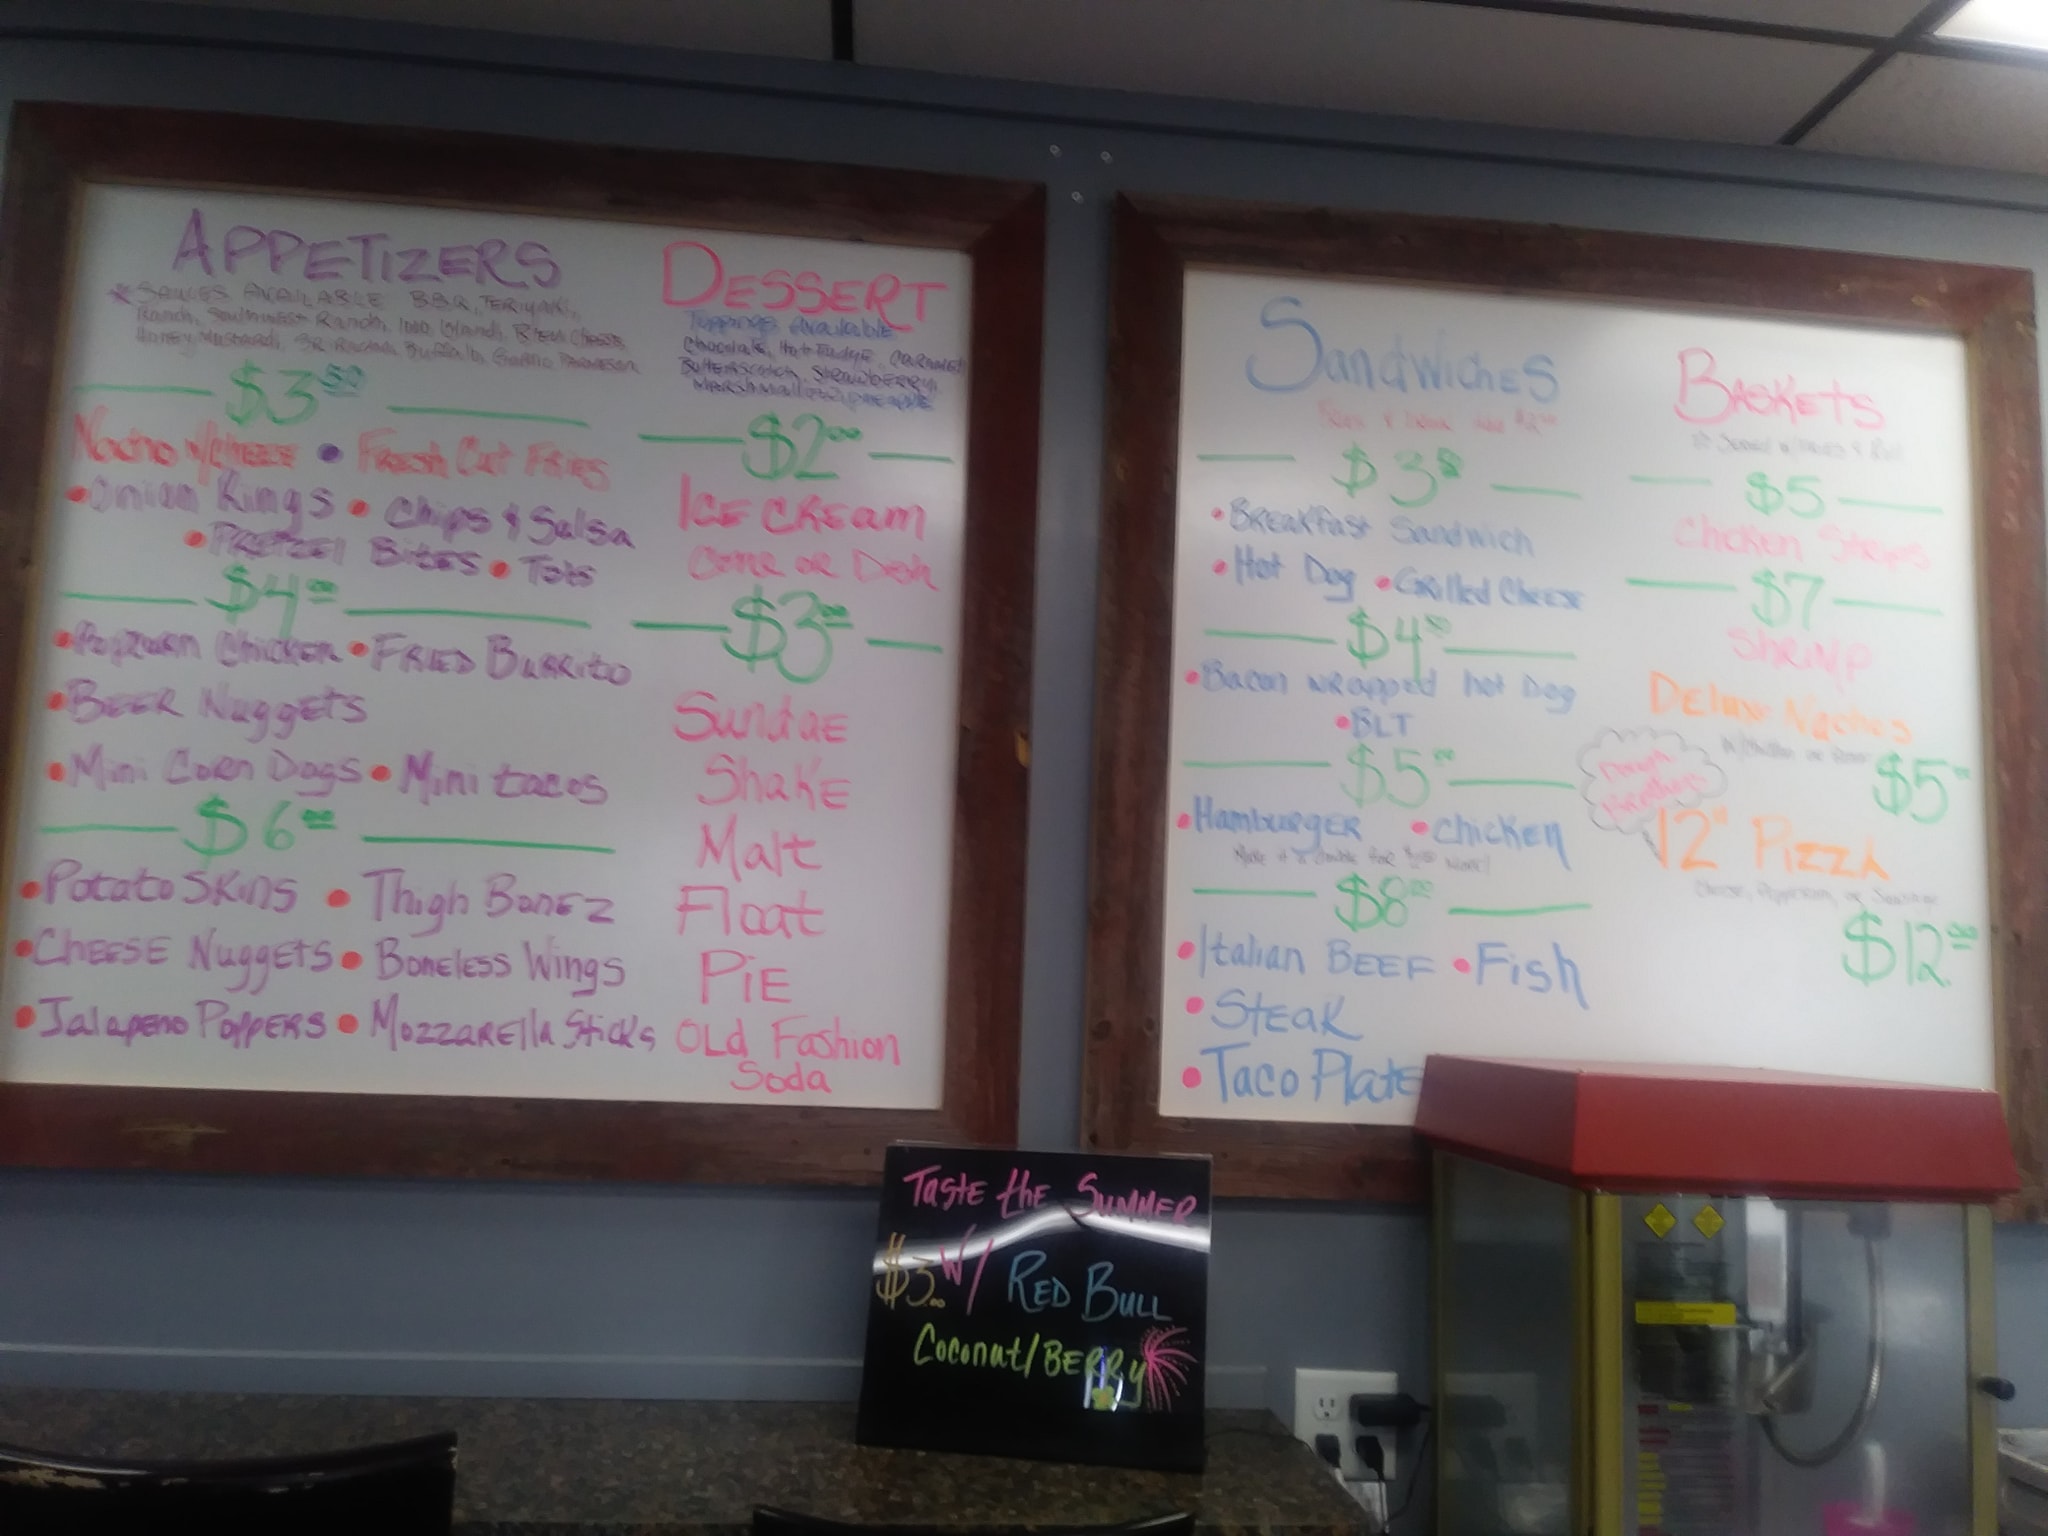 APPETIZERS
* SAUCES AVAILABLE BBQ, TERIYAKI,
Ranch, Southwest Ranch, 1000 Island, Bleu Cheese
Honey Mustard, SRIRACHA, Buffalo, Garlic Parmesan
$3 50
Nacho w/CHEESE • FRESH CUT FRIES
• Onion Rings • Chips & Salsa
• PRETZEL BITES • Tots
$4 00
• Popcorn Chicken • FRIED BURRITO
• BEER NuggETS
• Mini CORN Dogs • Mini tacos
$6 00
• Potato SKins • Thigh BONEZ
• CHEESE NuggETS • BONELESS Wings
• Jalapeno POPPERS • MOZZARElla Sticks
DESSERT
Toppings Available
Chocolate, Hot Fudge, CARAMEL
Butterscotch, STRAWBERRY,
MARSHMALLOW, PINEAPPLE
$2 00
ICE CREAM
Cone OR Dish
$3 00
Sundae
ShakE
Malt
Float
PiE
Old Fashion
Soda
SandwichES
$3
• BREAKfast Sandwich
• Hot Dog • GRilled CHEESE
$4 50
• Bacon wrapped hot Dog
• BLT
$5 00
• HamburgER • ChickEN
Make it a double for
$8 00
• Italian BEEF • Fish
• STEAK
• Taco Plate
BASKETS
$5
Chicken Strips
$7
ShRimp
DEluxe Nachos
w/chicken or
$5 00
12" Pizza
Cheese, Pepperoni, or Sausage
$12.00
TASTE the SUMMER
$3.00 W/ RED BULL
Coconut/BERRY